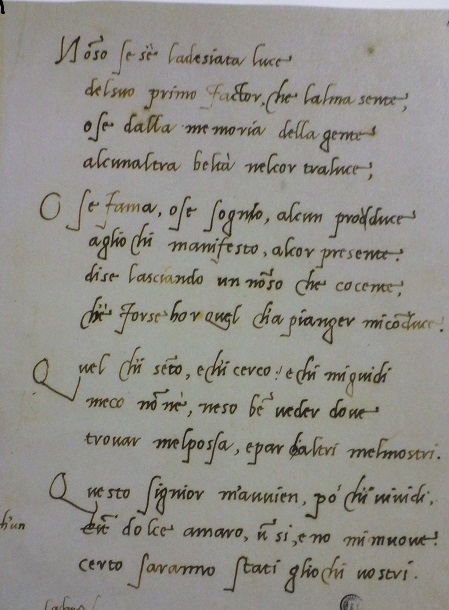 Nõ so se s'è ladesiata luce
delsuo primo factor, che lalma sente,
o se dalla memoria della gente
alcunaltra beltà nelcor traluce;
O se fama, o se sognio, alcun prodduce
aglio chi manifesto, alcor presente.
di se lasciando un nõ so che cocente,
ch'è forse hor quel ch'a pianger mi cõduce.
Quel ch'i sẽto, e ch'i cerco: e chi mi guidi
meco nõ n'è, ne so bẽ veder dove
trovar mel possa, e par c'altri mel mostri.
Questo, signior, m'avvien, po' ch'i vividi,
c'un dolce amaro, ũ si, e no mi muove:
certo saranno stati glio chi vostri.